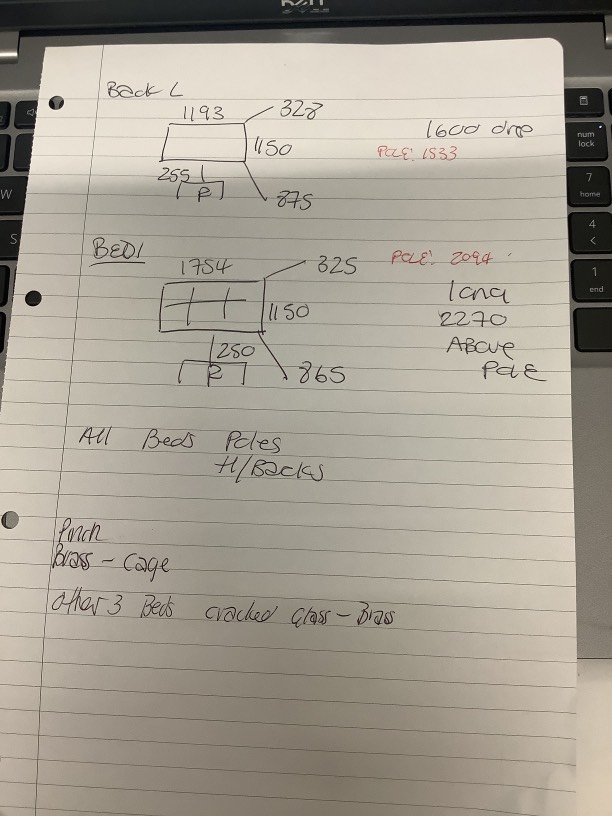 Back L
1193
328
1150
1600 drop
POLE: 1533
255
R
875
BED1
1754
325
POLE: 2094
1150
long
2270
ABOVE
POLE
250
R
865
All Beds Poles
H/Backs
Pinch
Brass - Cage
other 3 Beds cracked Glass - Brass
num
lock
7
home
4
<
1
end
W
S